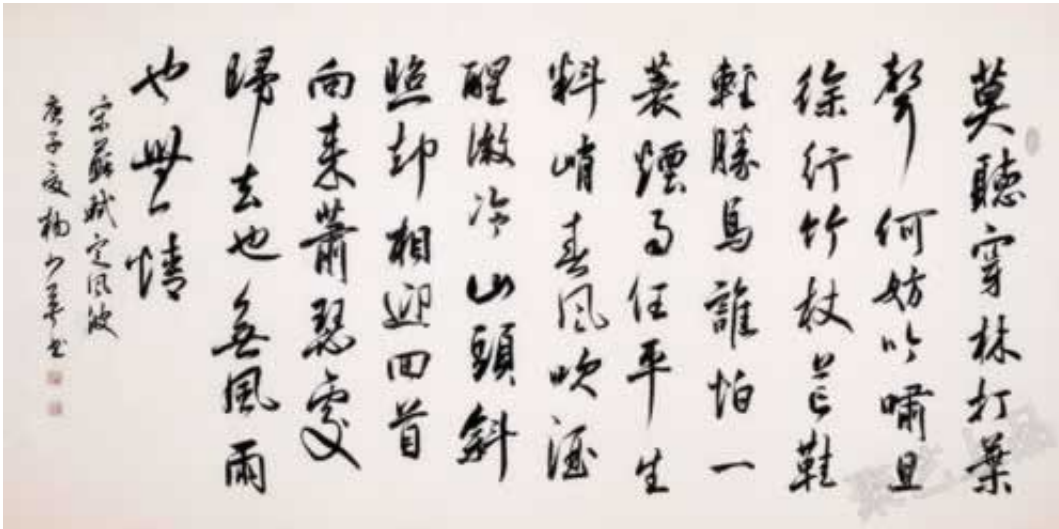 莫聽穿林打葉
聲何妨吟嘯且
徐行竹杖芒鞋
輕勝馬誰怕一
蓑煙雨任平生
料峭春風吹酒
醒微冷山頭斜
照却相迎回首
向来蕭瑟處
歸去也無風雨
也無晴
宋蘇軾定風波
庚子夏楊書